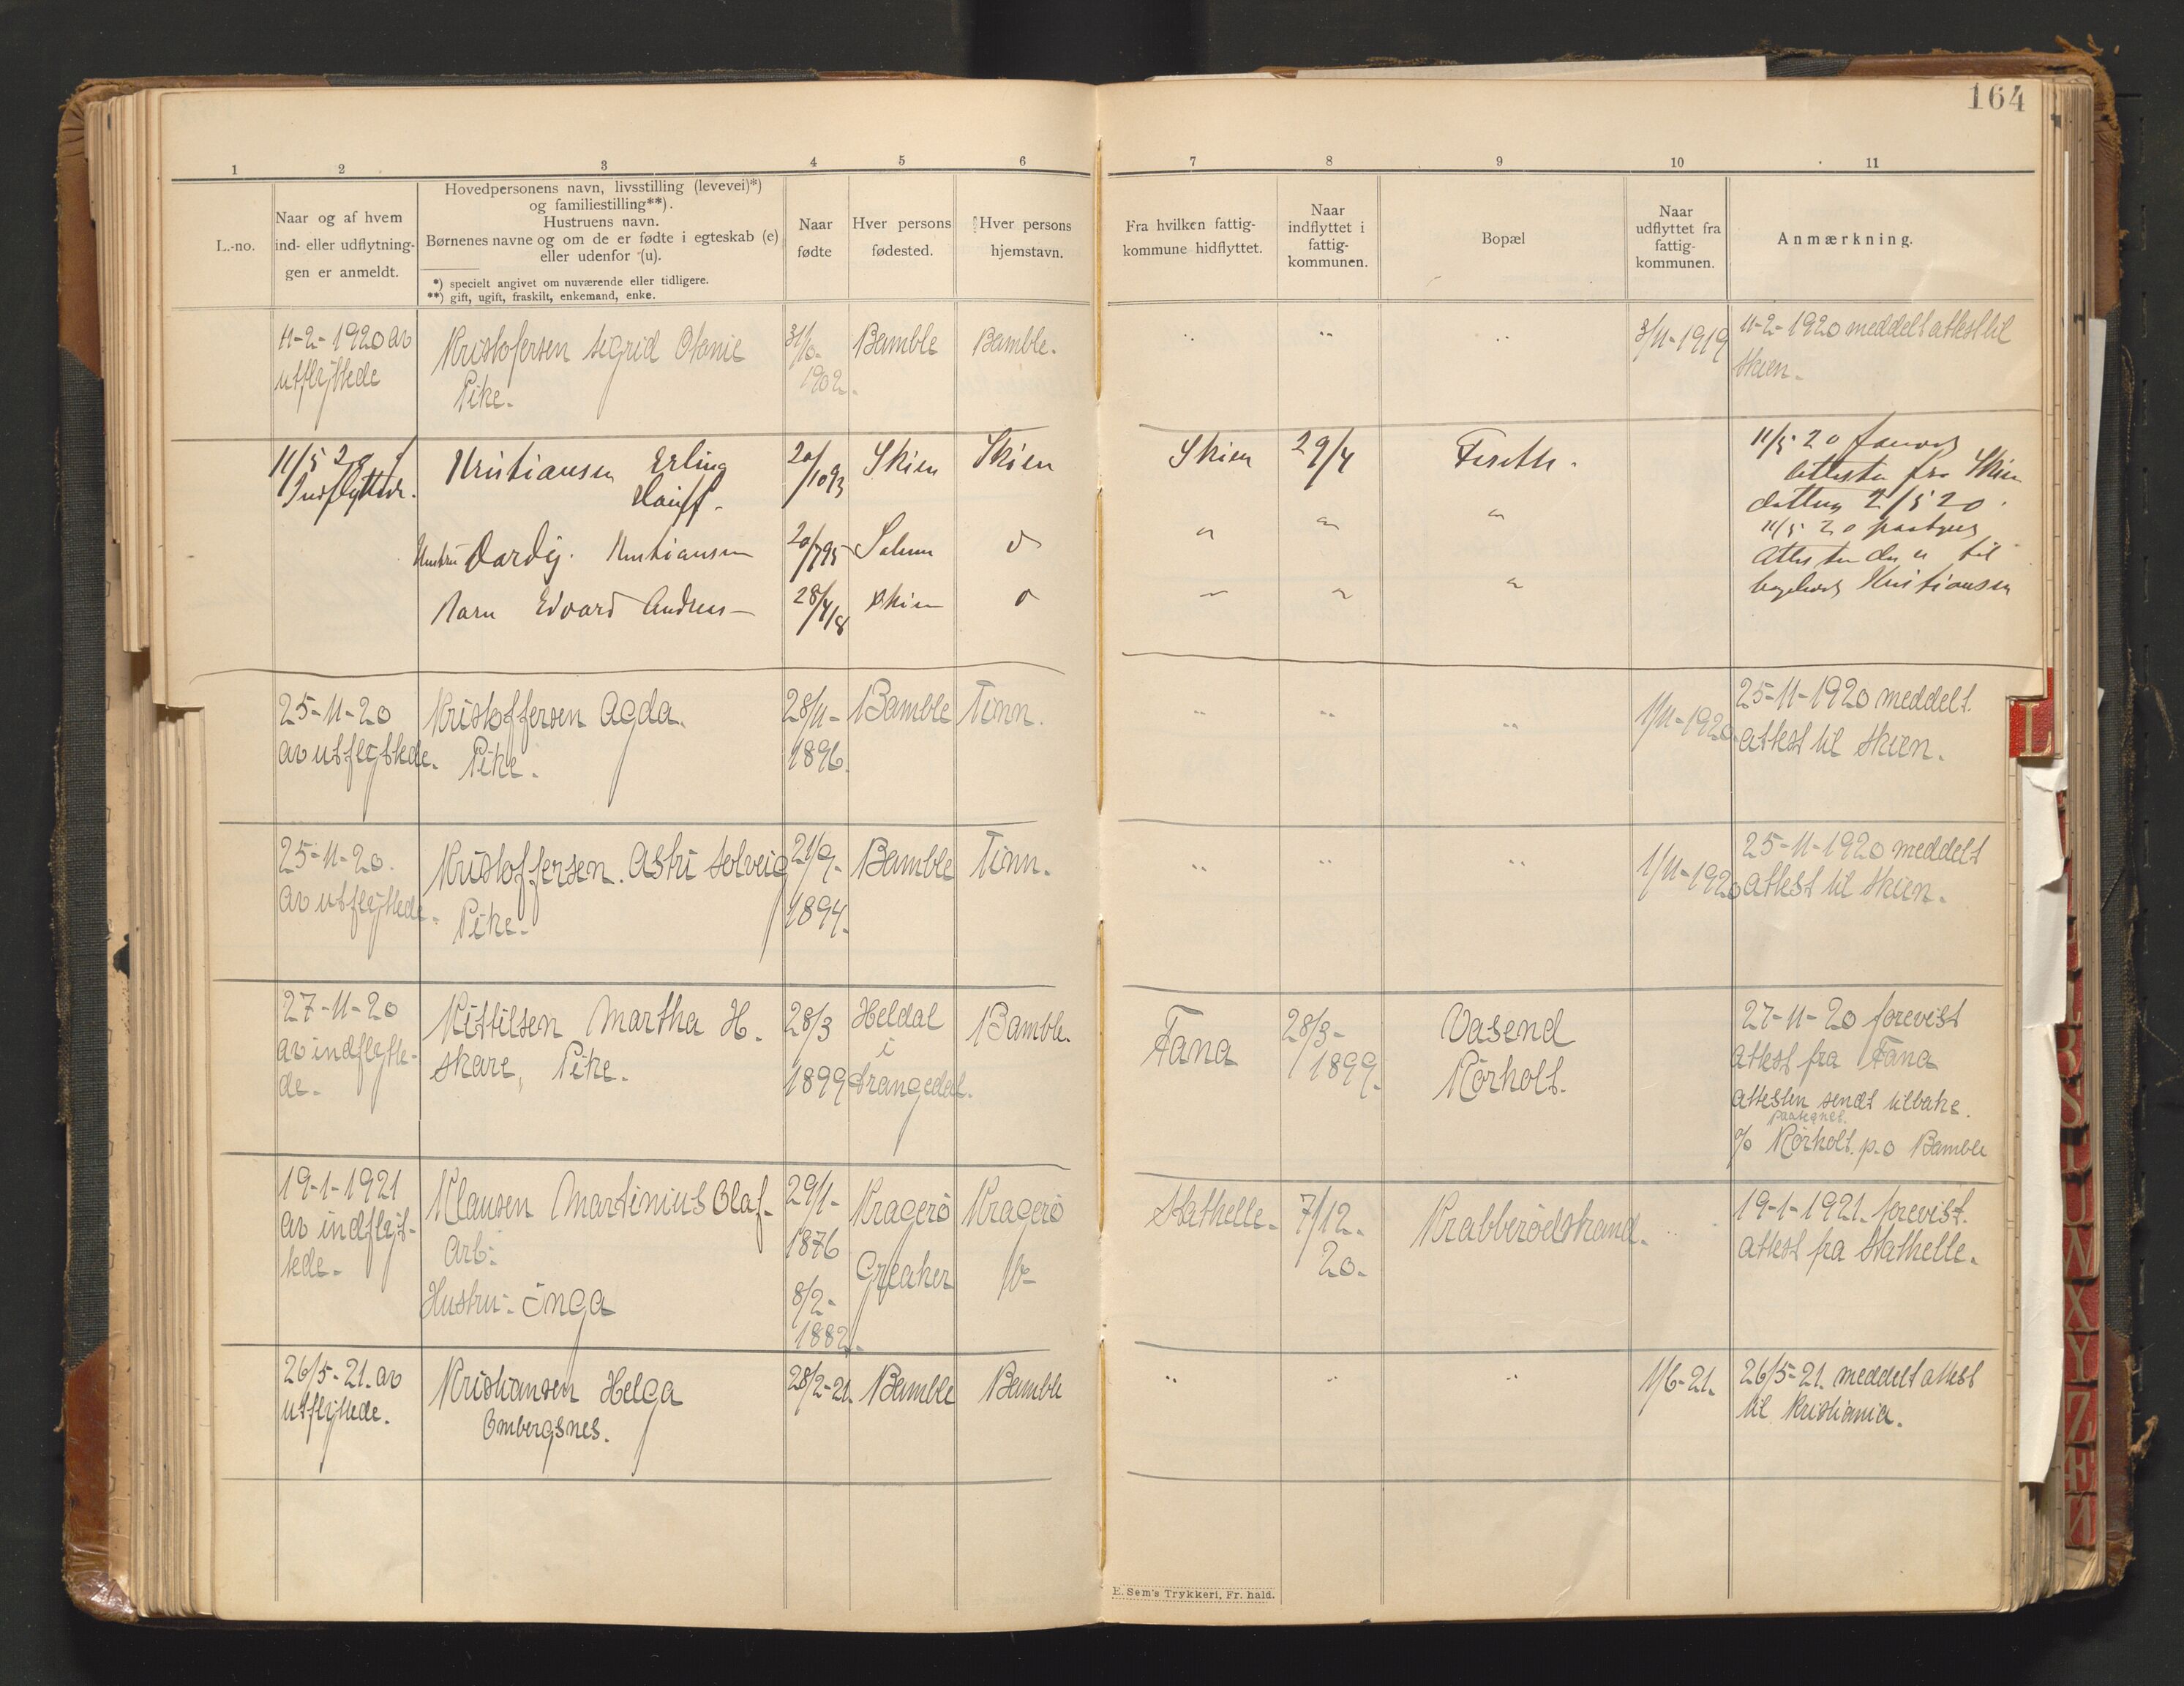 164
1 2 3 4 5 6 7 8 9 10 11
L.-no.
Naar og af hvem
ind- eller udflytnin-
gen er anmeldt.
Hovedpersonens navn, livsstilling (levevei)*)
og familiestilling**).
Hustruens navn.
Børnenes navne og om de er fødte i egteskab (e)
eller udenfor (u).
*) specielt angivet om nuværende eller tidligere.
**) gift, ugift, fraskilt, enkemand, enke.
Naar
fødte
Hver persons
fødested.
Hver persons
hjemstavn.
Fra hvilken fattig-
kommune hidflyttet.
Naar
indflyttet i
fattig-
kommunen.
Bopæl
Naar
udflyttet fra
fattig-
kommunen.
Anmærkning.
11-2-1920 av
utflyttede
Kristofersen Sigrid Otonie
Pike.
31/10-
1902.
Bamble
Bamble.
" " "
3/11-1919
11-2-1920 meddelt attest til
Skien.
11/5 20 f
Indflyttede.
Kristiansen Erling
Hauff.
20/10 93
Skien
Skien
Skien
29/4
11/5 20
attesten fra Skien
2/5 20.
11/5 20
attesten til
Kristiansen
Hustru Kristiansen
20/7 95
Solum
" " "
Barn Edvard Andreas —
28/4 18
Skien
" " "
25-11-20
av utflyttede.
Kristoffersen Agda.
Pike.
28/11-
1896.
Bamble
Tinn.
" " "
1/11-1920.
25-11-1920 meddelt
attest til Skien.
25-11-20.
av utflyttede.
Kristoffersen. Astri Solveig
Pike.
21/9-
1894.
Bamble
Tinn.
" " "
1/11-1920
25-11-1920 meddelt
attest til Skien.
27-11-20
av indflytte-
de.
Kittilsen Martha H.
Skare, Pike.
28/3
1899
Heldal
i
Drangedal.
Bamble.
Fana
28/3-
1899.
Vasend
Rörholt.
27-11-20 forevist
attest fra Fana
attesten sendt tilbake.
paategnet.
% Rörholt. p.o Bamble
19-1-1921
av indflyt-
tede.
Klausen Martinius Olaf-
Arb:
Hustru: Inga
29/1-
1876
8/2-
1882.
Kragerö
Greaker
Kragerö
Stathelle.
7/12.
20.
Krabberödstrand.
19-1-1921. forevist.
attest fra Stathelle.
26/5-21. av
utflyttede.
Kristiansen Helga
Ombergsnes.
28/2-21.
Bamble
Bamble
" " "
1/6-21.
26/5-21. meddelt attest
til Kristiania.
E. Sem's Trykkeri, Fr. hald.
L
R
S
T
U
W
X
Y
Z
Æ